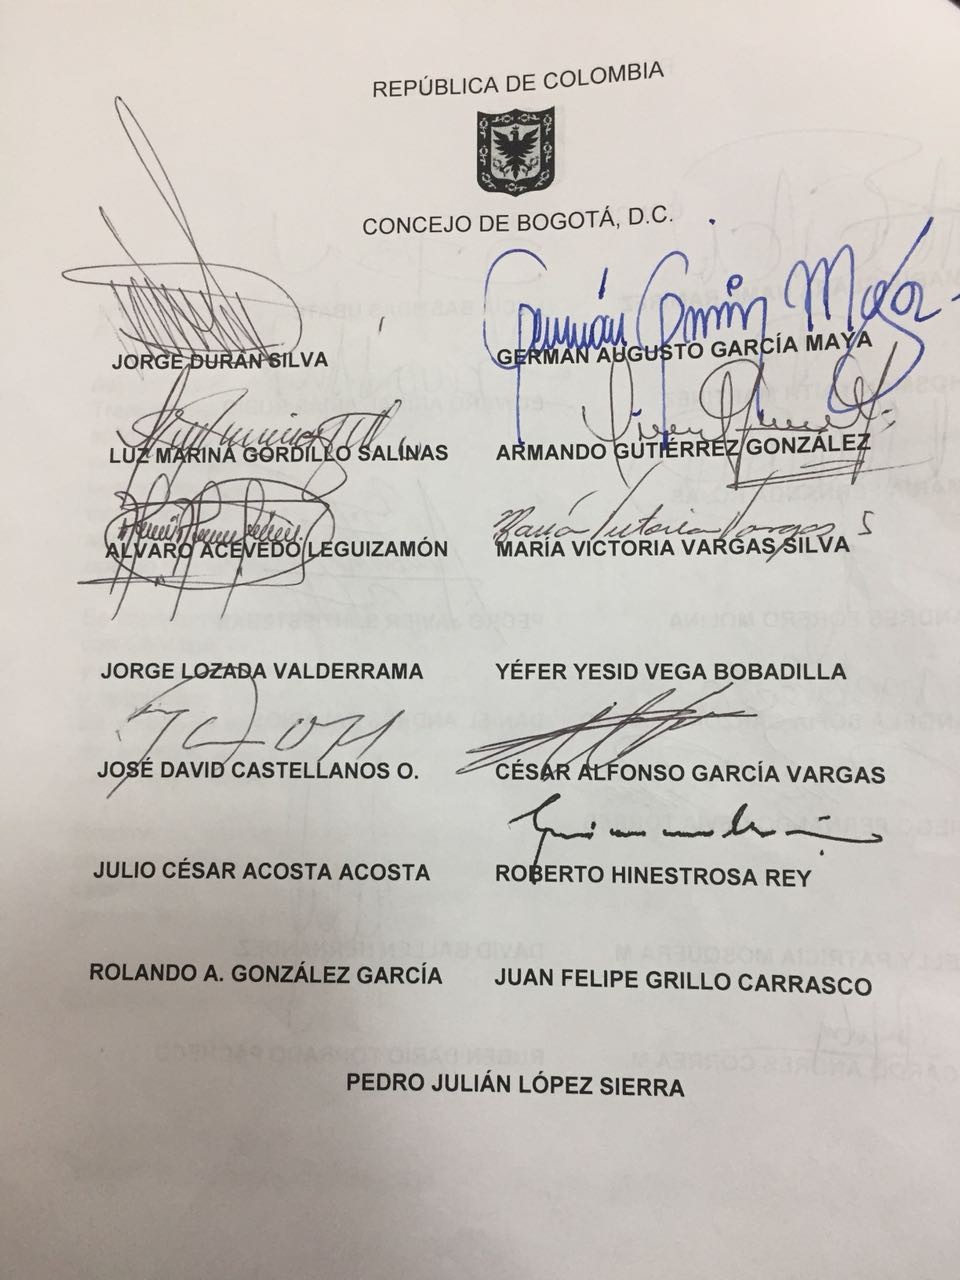 REPÚBLICA DE COLOMBIA
CONCEJO DE BOGOTÁ, D.C.
Germán García Maya
JORGE DURÁN SILVA GERMÁN AUGUSTO GARCÍA MAYA
LUZ MARINA GORDILLO SALINAS ARMANDO GUTIÉRREZ GONZÁLEZ
María Victoria Vargas S
ALVARO ACEVEDO LEGUIZAMÓN MARÍA VICTORIA VARGAS SILVA
JORGE LOZADA VALDERRAMA YÉFER YESID VEGA BOBADILLA
JOSÉ DAVID CASTELLANOS O. CÉSAR ALFONSO GARCÍA VARGAS
JULIO CÉSAR ACOSTA ACOSTA ROBERTO HINESTROSA REY
ROLANDO A. GONZÁLEZ GARCÍA JUAN FELIPE GRILLO CARRASCO
PEDRO JULIÁN LÓPEZ SIERRA